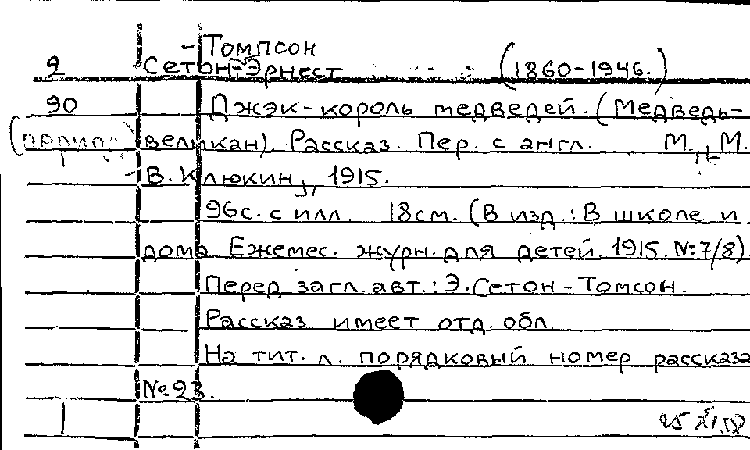 - Томпсон
9 Сетон-Эрнест (1860-1946.)
90 Джэк-король медведей. (Медведь-
великан). Рассказ. Пер. с англ. М., М.
В. Клюкин, 1915.
96с. с илл. 18см. (В изд.: В школе и
дома Ежемес. журн. для детей. 1915. №7/8).
Перед загл. авт.: Э. Сетон-Томсон.
Рассказ имеет отд. обл.
На тит. л. порядковый номер рассказа
№23.